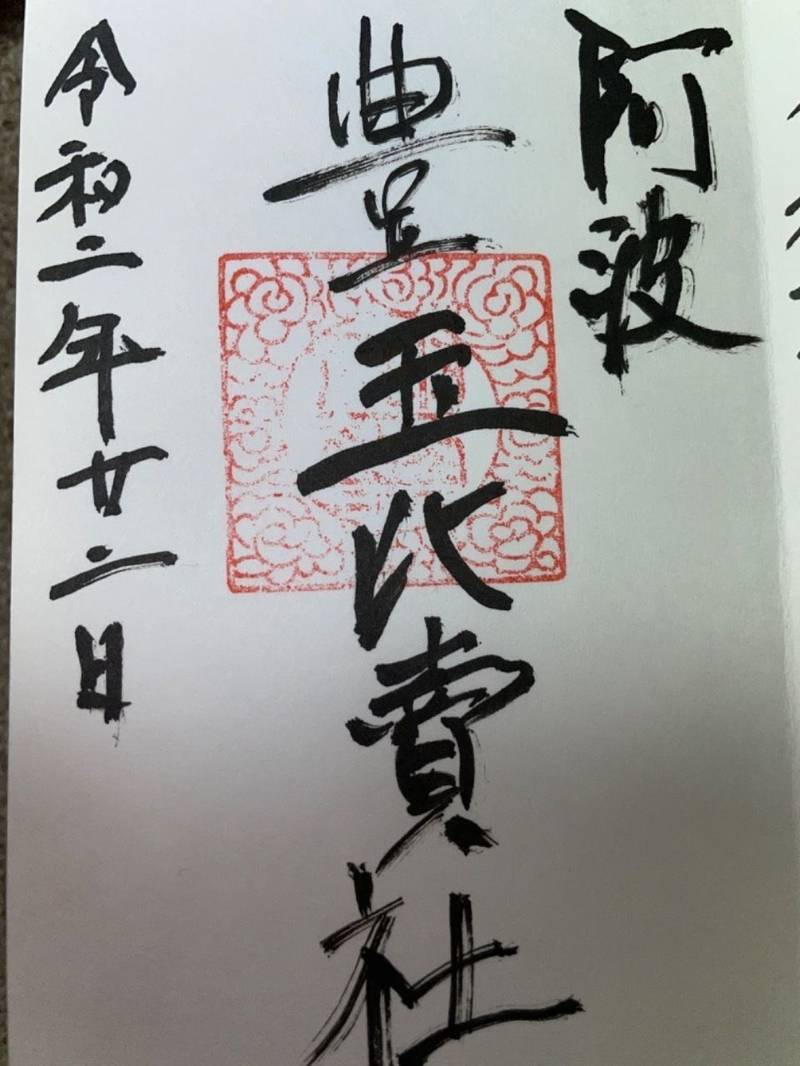 阿波
豊玉比賣社
令和二年廿二日